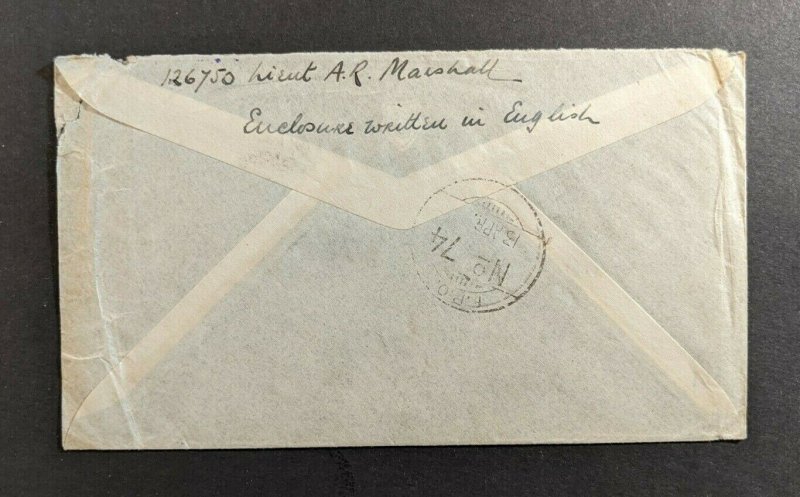 126750 Lieut A.R. Marshall
Enclosure written in English
F.P.O.
No 74
13 APR.